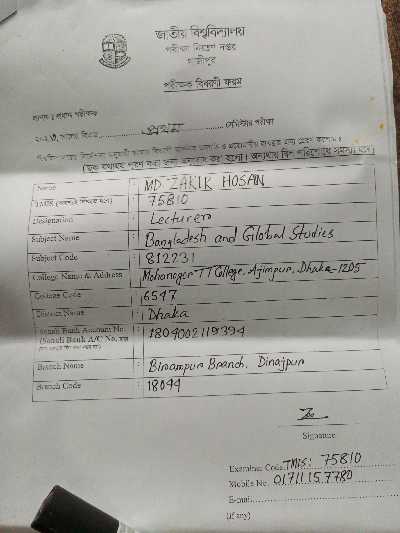 জাতীয় বিশ্ববিদ্যালয়
পরীক্ষা নিয়ন্ত্রণ দপ্তর
গাজীপুর
পরীক্ষক বিবরণী ফরম
প্রথম সেমিস্টার পরীক্ষা
Name : MD. ZAKIR HOSAN
TMIS : 75810
Designation : Lecturer
Subject Name : Bangladesh and Global Studies
Subject Code : 812231
College Name & Address : Mohanagar TT College, Ajimpur, Dhaka-1205
College Code : 6547
District Name : Dhaka
Sonali Bank Account No. : 1804002119394
(Sonali Bank A/C No.
Branch Name : Birampur Branch, Dinajpur
Branch Code : 18044
Signature
Examiner Code TMIS: 75810
Mobile No. 01711157780
E-mail
(if any)